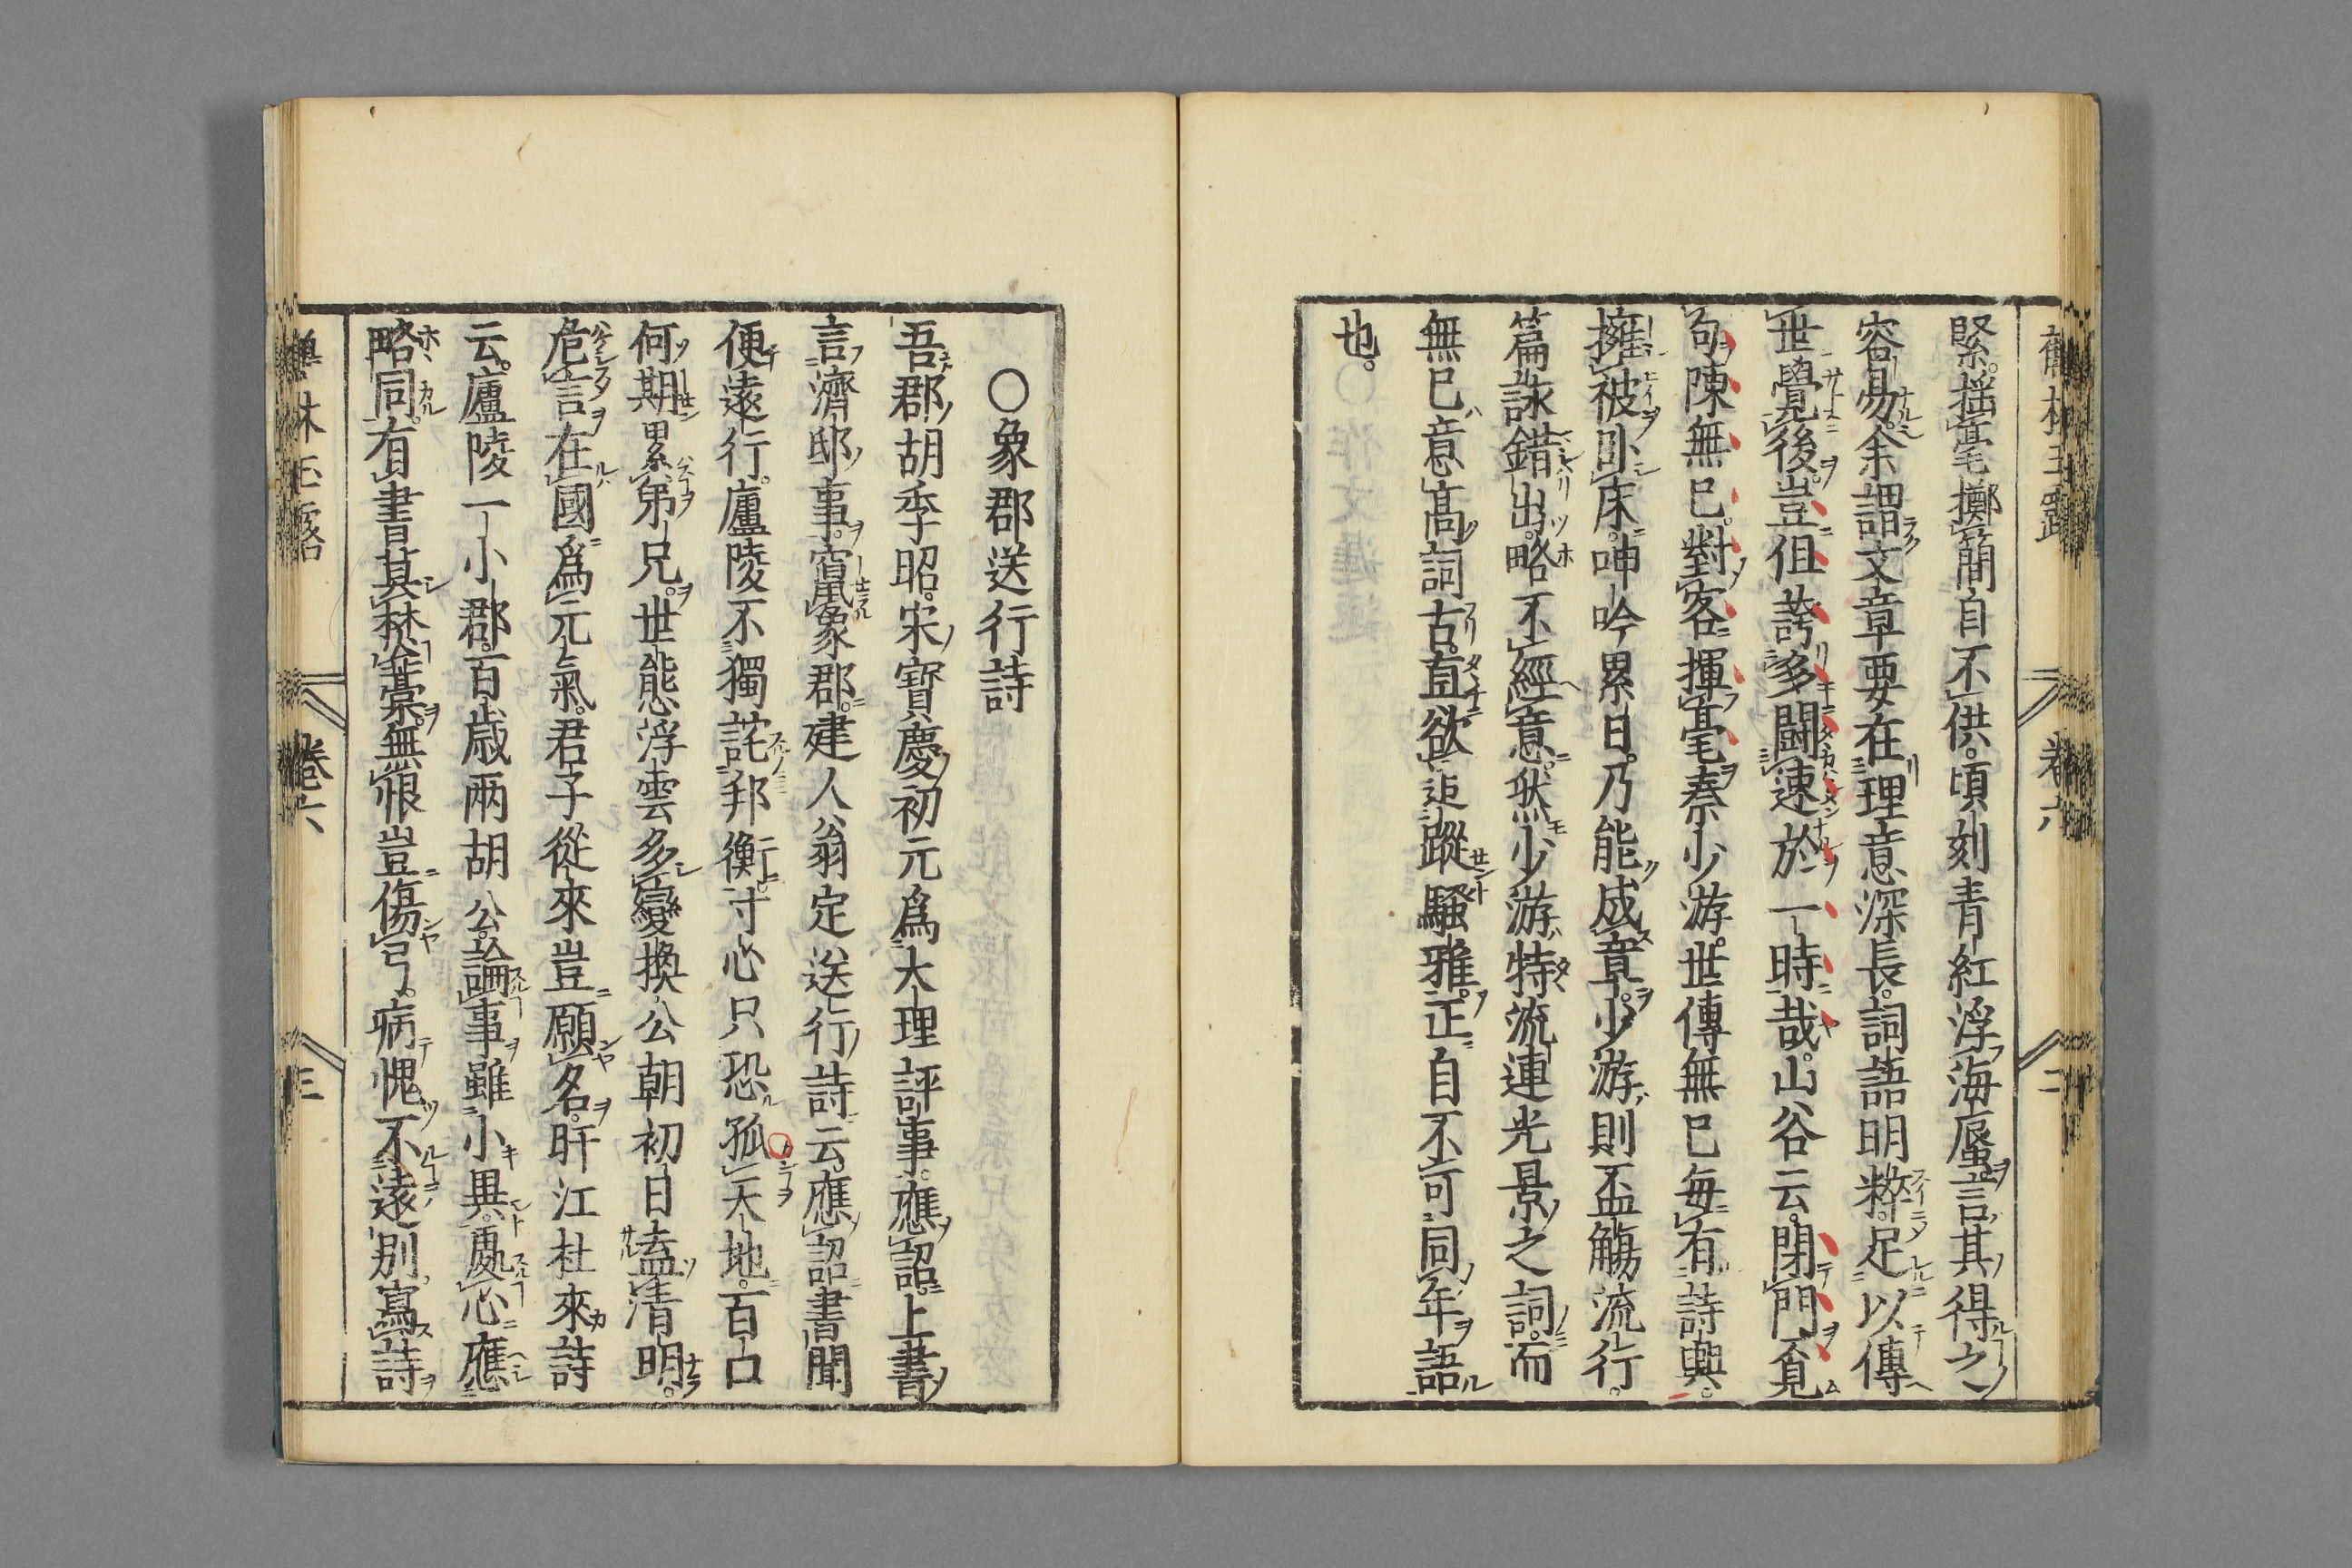 緊。揺毫擲簡自不供。頃刻青紅浮海蜃言其得之
容易。余謂文章要在理意深長。詞語明粹。足以傳
世覺後。豈但誇多闘速於一時哉。山谷云。閉門覓
句陳無已。對客揮毫秦少游。世傳無已毎有詩興。
擁被臥床。呻吟累日。乃能成章。少游則盃觴流行。
篇詠錯出。略不經意。然少游特流連光景之詞。而
無已意高詞古。直欲追蹤騷雅。正自不可同年語
也。
〇象郡送行詩
吾郡胡季昭。宋寶慶初元爲大理評事。應詔上書
言濟邸事。竄象郡。建人翁定送行詩云。應詔書聞
便遠行。廬陵不獨說邦衡。寸心只恐孤天地。百口
何期累弟兄。世態浮雲多變換。公朝初日盍清明。
危言在國爲元氣。君子從來豈願名。盱江杜來詩
云。廬陵一小郡。百歳兩胡公。論事雖小異。處心應
略同。有書莫焚藁。無恨豈傷弓。病愧不遠別。寫詩
卷六
三